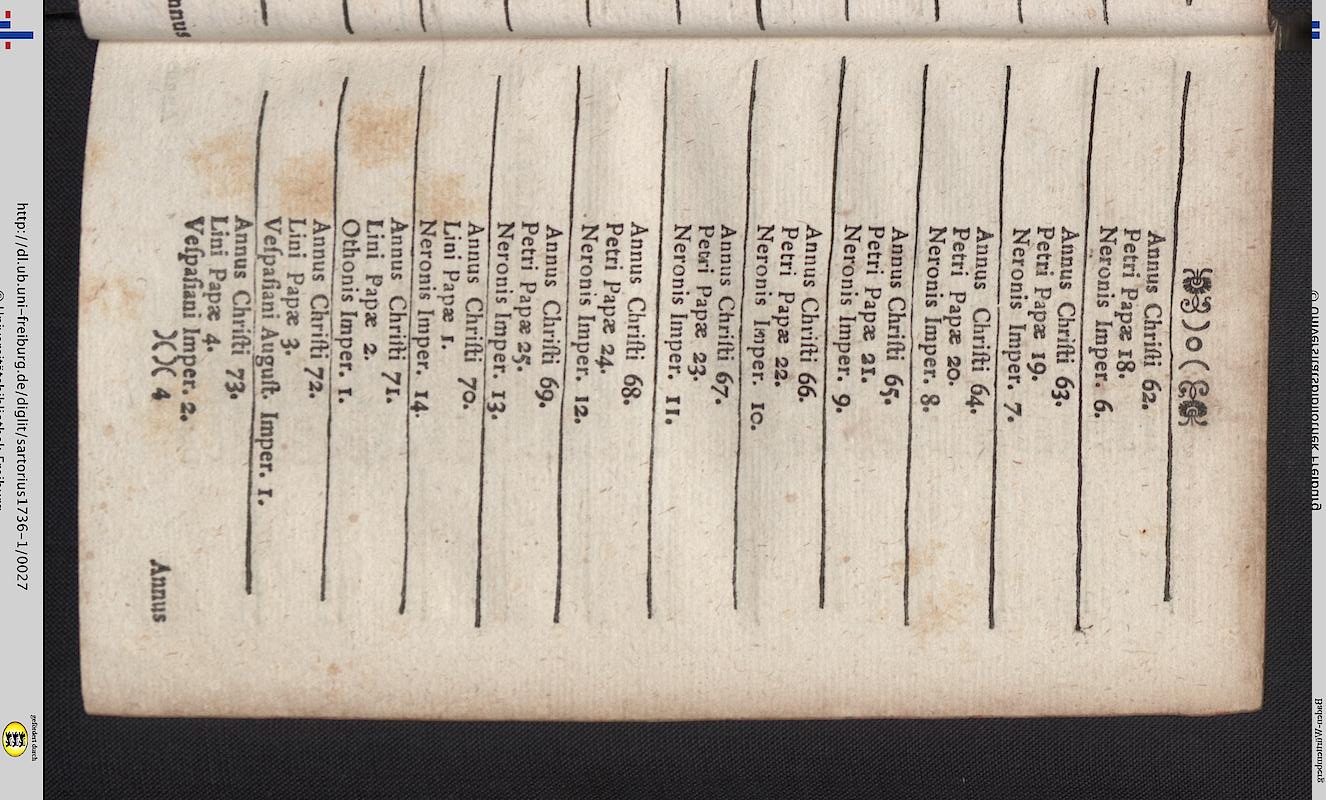 )o(
Annus Chriſti 62.
Petri Papæ 18.
Neronis Imper. 6.
Annus Chriſti 63.
Petri Papæ 19.
Neronis Imper. 7.
Annus Chriſti 64.
Petri Papæ 20.
Neronis Imper. 8.
Annus Chriſti 65.
Petri Papæ 21.
Neronis Imper. 9.
Annus Chriſti 66.
Petri Papæ 22.
Neronis Imper. 10.
Annus Chriſti 67.
Petri Papæ 23.
Neronis Imper. 11.
Annus Chriſti 68.
Petri Papæ 24.
Neronis Imper. 12.
Annus Chriſti 69.
Petri Papæ 25.
Neronis Imper. 13.
Annus Chriſti 70.
Lini Papæ 1.
Neronis Imper. 14.
Annus Chriſti 71.
Lini Papæ 2.
Othonis Imper. 1.
Annus Chriſti 72.
Lini Papæ 3.
Veſpaſiani Auguſt. Imper. 1.
Annus Chriſti 73.
Lini Papæ 4.
Veſpaſiani Imper. 2.
)( )( 4
Annus
http://dl.ub.uni-freiburg.de/diglit/sartorius1736-1/0027
gefördert durch